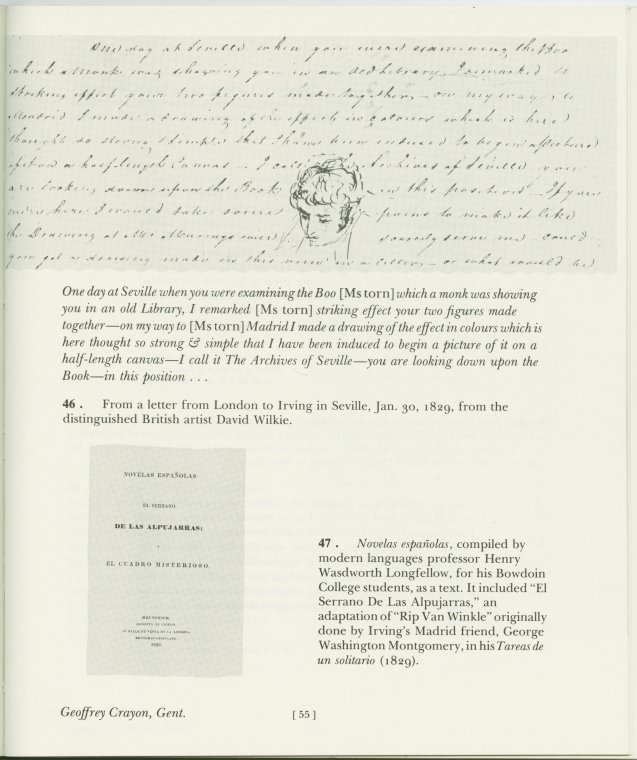 One day at Seville when you were examining the Boo
which a Monk was showing you in an old Library, I remarked
striking effect your two figures made together — on my way to
Madrid I made a drawing of the effect in colours which is here
thought so strong & simple that I have been induced to begin a picture
of it on a half length Canvas — I call it The Archives of Seville you
are looking down upon the Book — in this position If you
were here I would take some
the Drawing at Mr Murrays scarcely serve me could
you get a drawing made in this view in a letter — or what would be
One day at Seville when you were examining the Boo [Ms torn] which a monk was showing
you in an old Library, I remarked [Ms torn] striking effect your two figures made
together—on my way to [Ms torn] Madrid I made a drawing of the effect in colours which is
here thought so strong & simple that I have been induced to begin a picture of it on a
half-length canvas—I call it The Archives of Seville—you are looking down upon the
Book—in this position . . .
46 . From a letter from London to Irving in Seville, Jan. 30, 1829, from the
distinguished British artist David Wilkie.
NOVELAS ESPAÑOLAS.
EL SERRANO
DE LAS ALPUJARRAS:
Y
EL CUADRO MISTERIOSO.
BRUNSWICK
IMPRENTA DE GRIFFIN.
SE HALLA DE VENTA EN LA LIBRERIA
DE COLMAN—PORTLAND.
1830.
47 . Novelas españolas, compiled by
modern languages professor Henry
Wasdworth Longfellow, for his Bowdoin
College students, as a text. It included “El
Serrano De Las Alpujarras,” an
adaptation of “Rip Van Winkle” originally
done by Irving’s Madrid friend, George
Washington Montgomery, in his Tareas de
un solitario (1829).
Geoffrey Crayon, Gent.
[ 55 ]